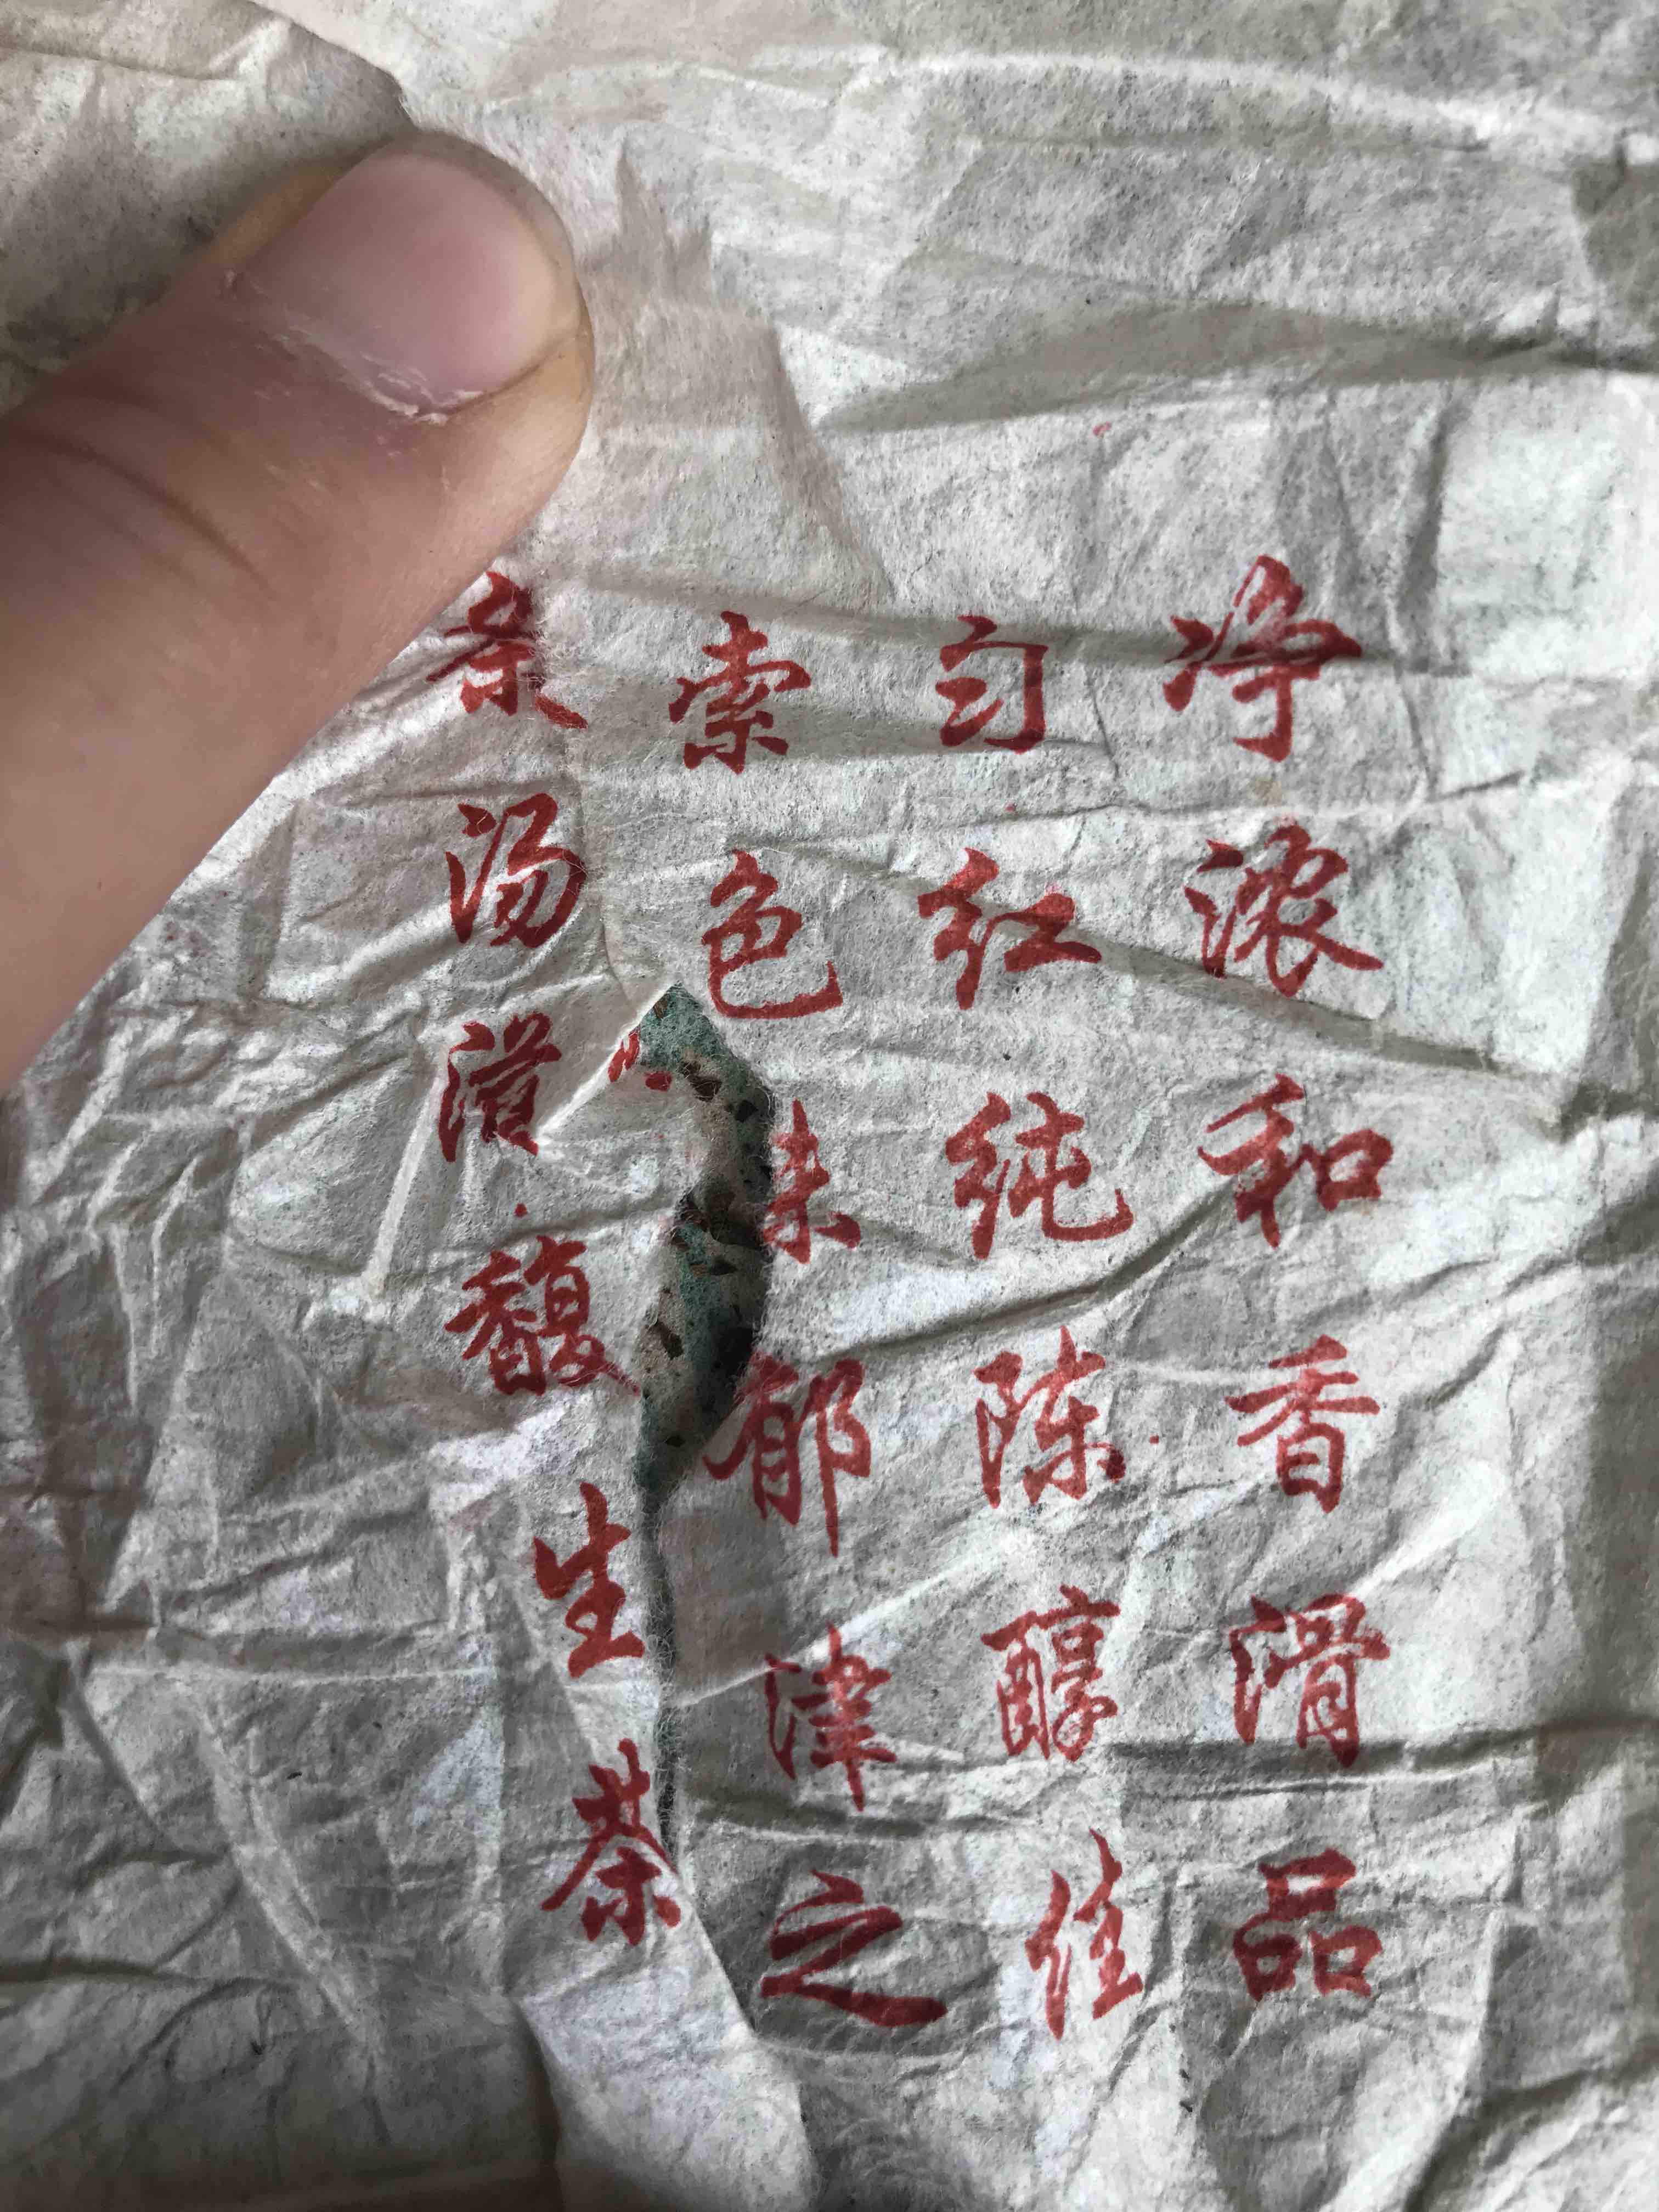 条索匀净
汤色红浓
滋味纯和
馥郁陈香
生津醇滑
茶之佳品